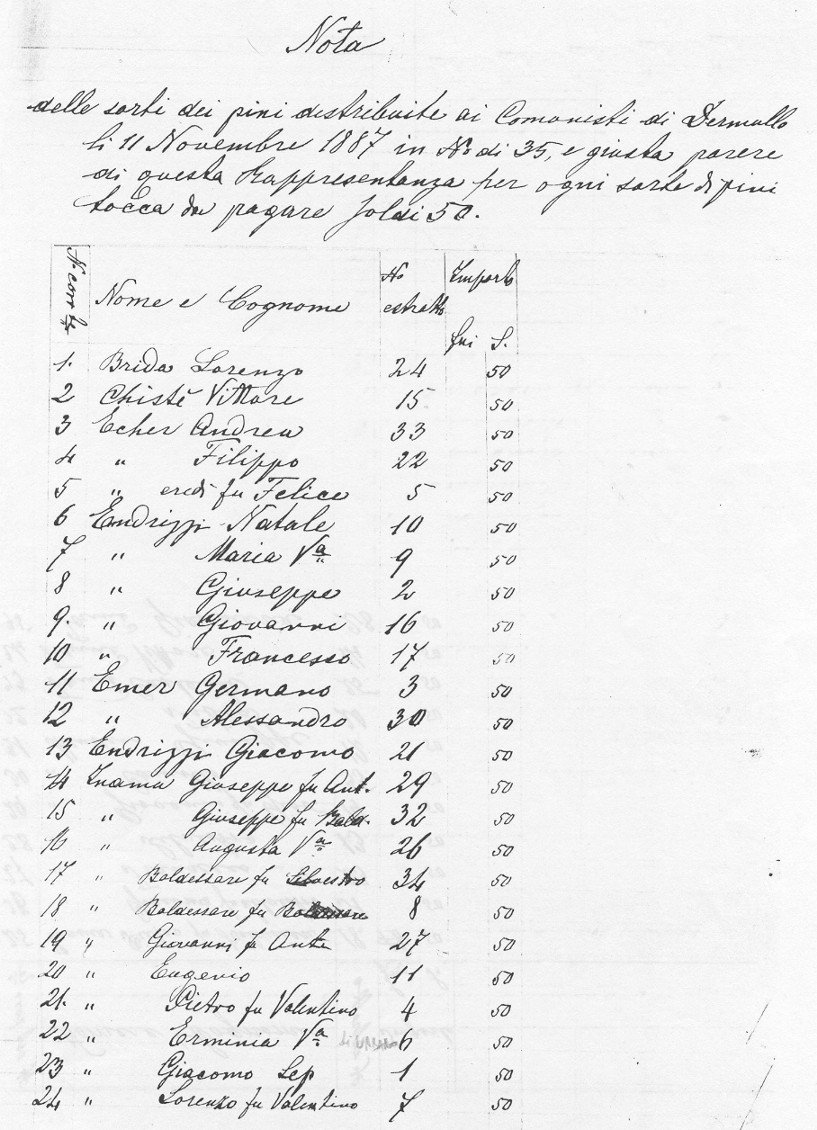 Nota
delle sorti dei pini distribuite ai Comunisti di Dermullo
li 11 Novembre 1887 in No di 35, e giusta parere
di questa Rappresentanza per ogni sorte di pini
tocca da pagare soldi 50.
N. corr.te Nome e Cognome No estratto Importo
fni S.
1. Brida Lorenzo 24 50
2 Chistè Vittore 15 50
3 Echer Andrea 33 50
4 " Filippo 22 50
5 " eredi fu Felice 5 50
6 Endrizzi Natale 10 50
7 " Maria Va 9 50
8 " Giuseppe 2 50
9. " Giovanni 16 50
10 " Francesso 17 50
11 Emer Germano 3 50
12 " Alessandro 30 50
13 Endrizzi Giacomo 21 50
14 Inama Giuseppe fu Ant. 29 50
15 " Giuseppe fu Bald. 32 50
16 " Augusta Va 26 50
17 " Baldessare fu Silvestro 34 50
18 " Baldessare fu Baldessare 8 50
19 " Giovanni fu Ant. 27 50
20 " Eugenio 11 50
21. " Pietro fu Valentino 4 50
22 " Erminia Va 6 50
23 " Giacomo Sep 1 50
24 " Lorenzo fu Valentino 7 50